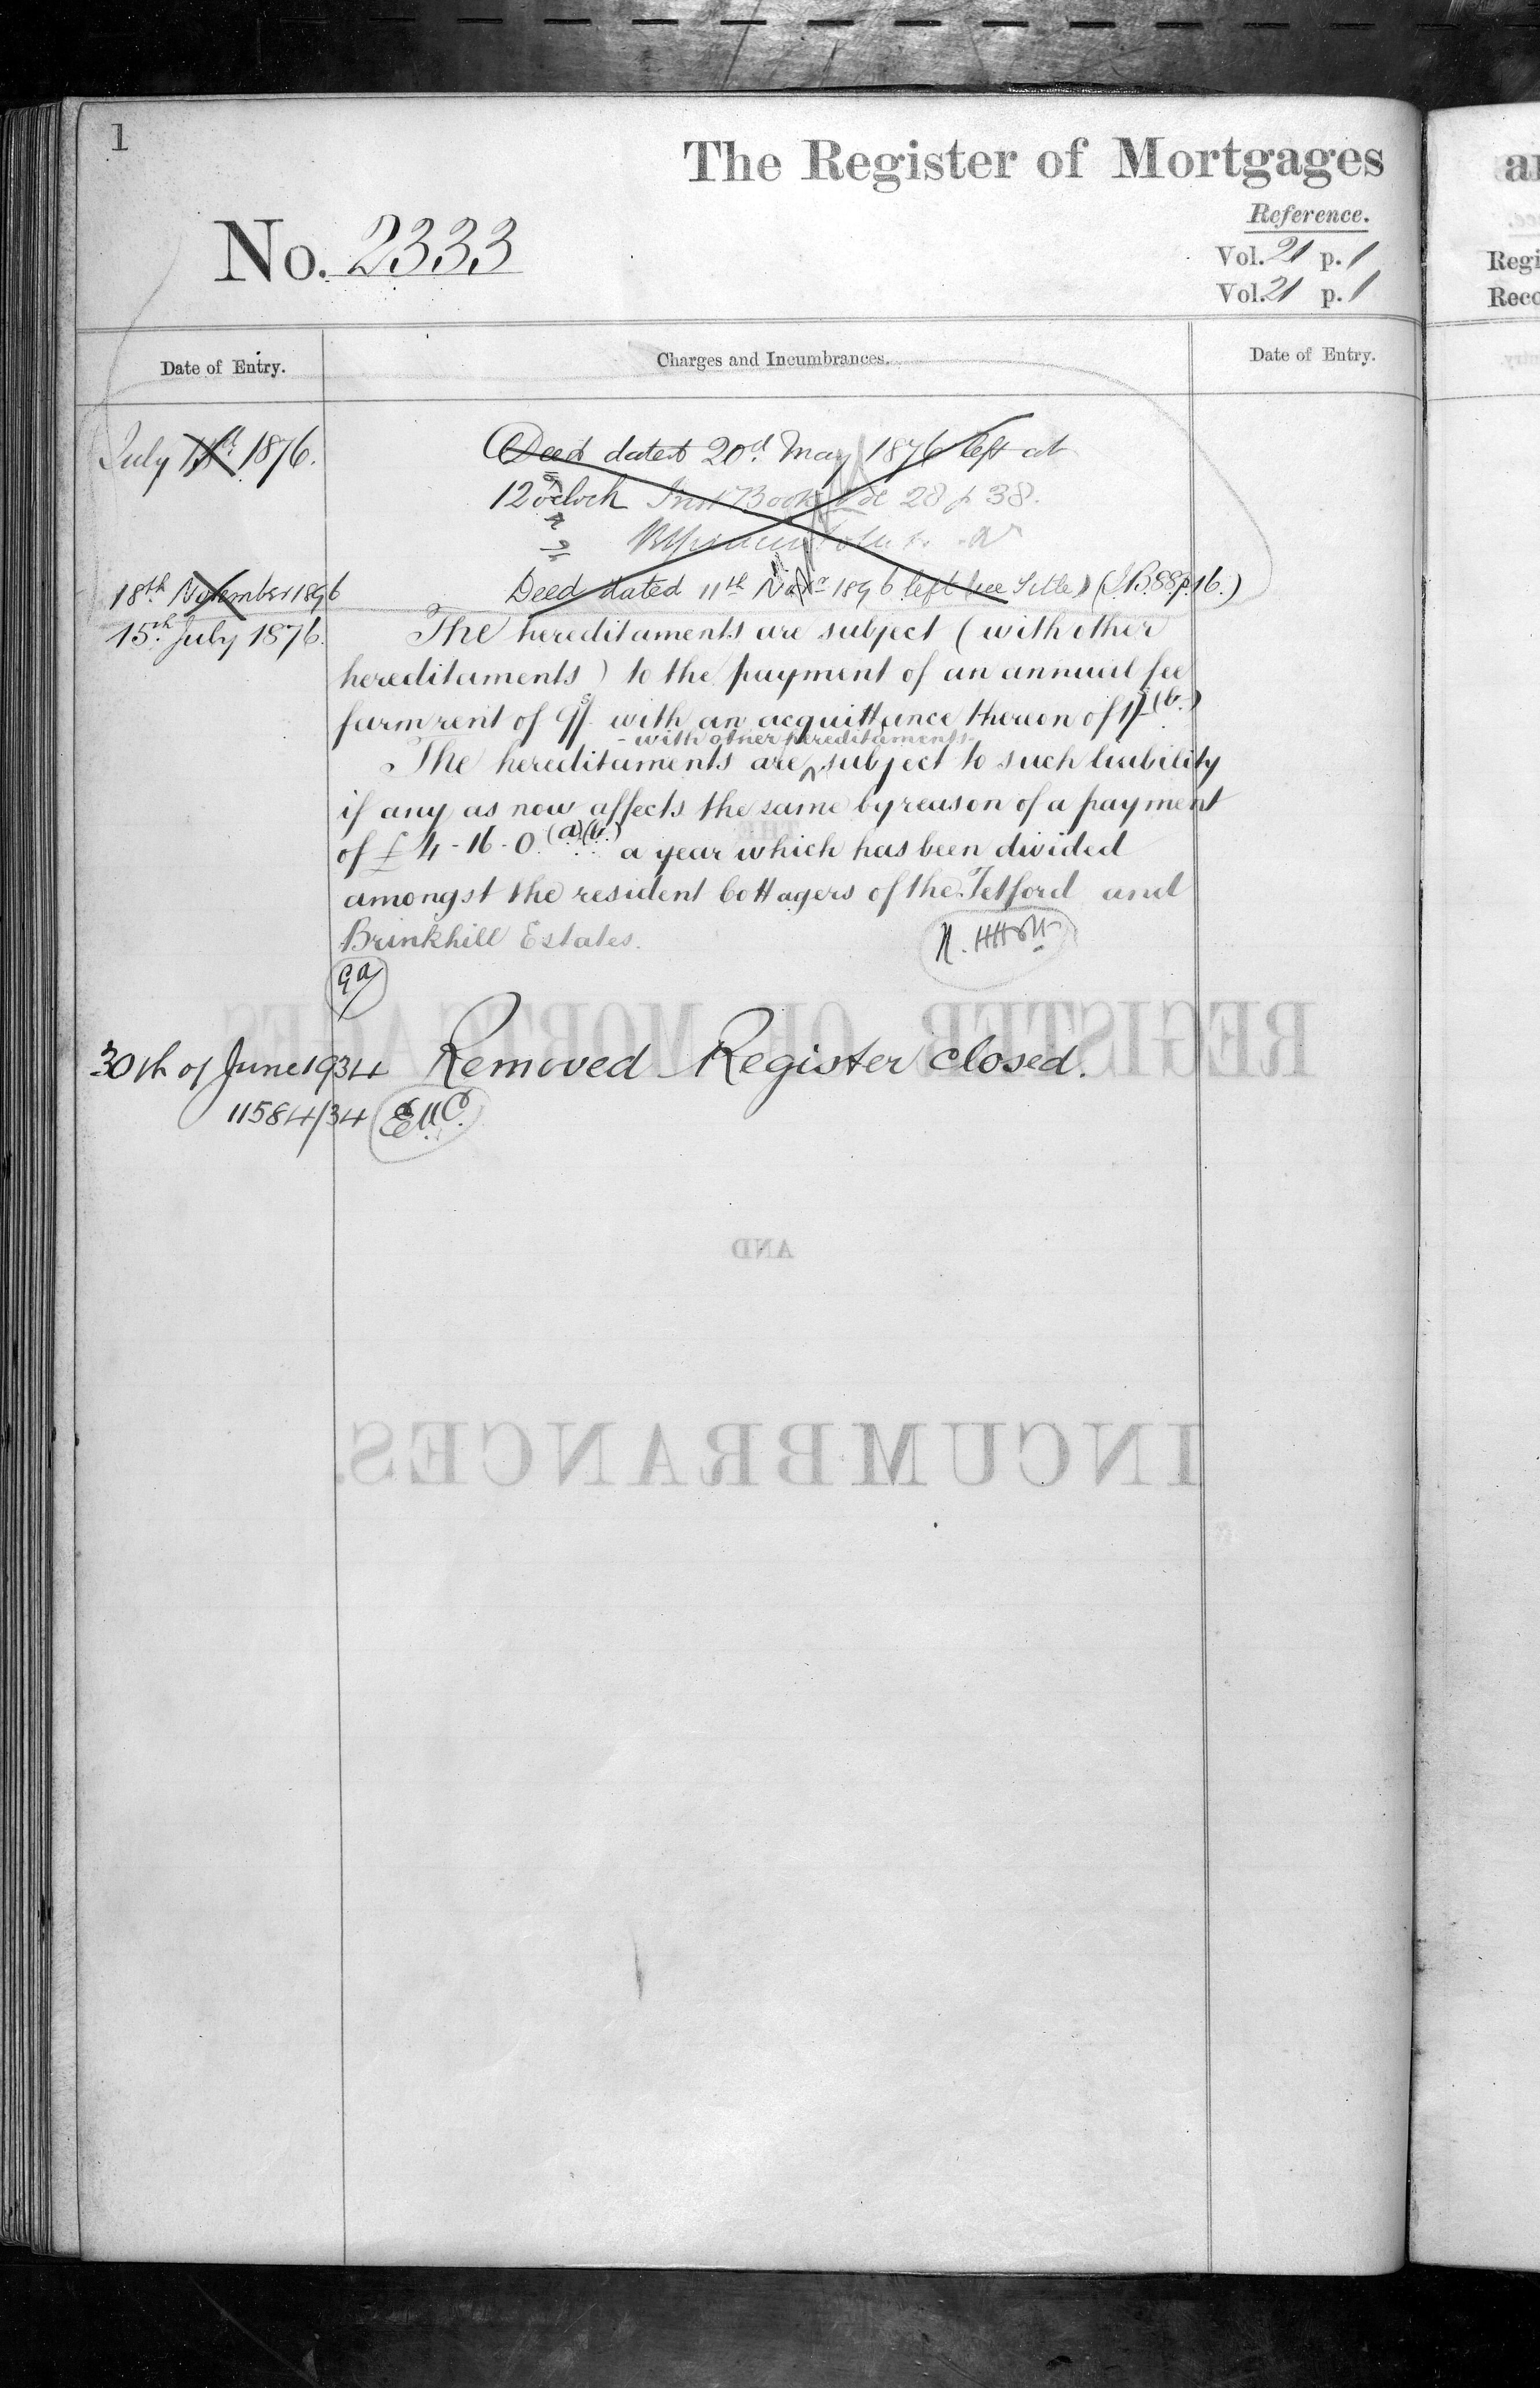 1
The Register of Mortgages
Reference.
No. 2333
Vol. 21 p. 1
Vol. 21 p. 1
Date of Entry.
Charges and Incumbrances.
Date of Entry.
July 1876.
Deed dated 20th May 1876 left at
12 oclock Book 28 p 38.
18th November 1896
Deed dated 11th Novr 1896 left (see Title) (I.B. 88 p. 16.)
15th July 1876.
The hereditaments are subject (with other
hereditaments) to the payment of an annual fee
farm rent of 9s/. with an acquittance thereon of
- with other hereditaments -
The hereditaments are subject to such liability
if any as now affects the same by reason of a payment
of £4-16-0 (a)(b.) a year which has been divided
amongst the resident Cottagers of the Tetford and
Brinkhill Estates.
30th of June 1934 Removed Register closed.
11584/34
REGISTER OF MORTGAGES
AND
INCUMBRANCES.
Regi